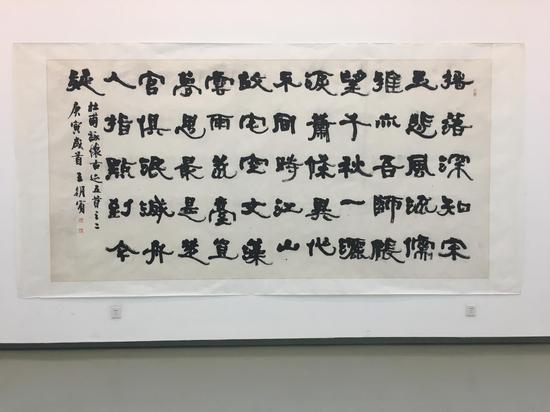 搖落深知宋
玉悲風流儒
雅亦吾師悵
望千秋一灑
淚蕭條異代
不同時江山
故宅空文藻
雲雨荒臺豈
夢思最是楚
宮俱泯滅舟
人指點到今
疑
杜甫詠懷古迹五首之二
庚寅歲首王朝賓